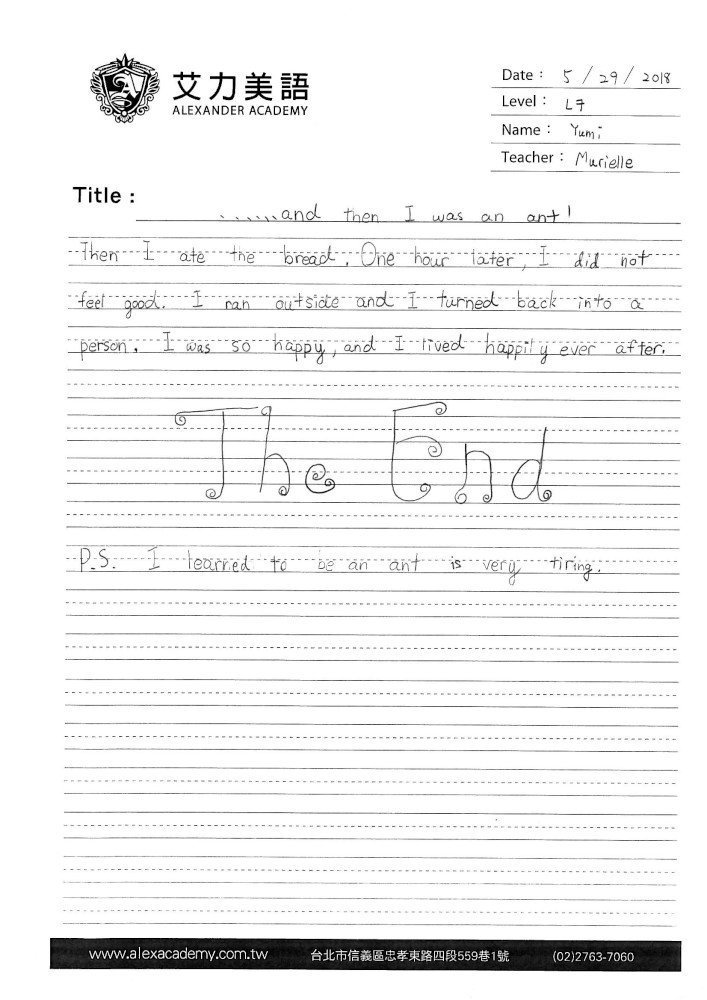 艾力美語
ALEXANDER ACADEMY
Date : 5 / 29 / 2018
Level : L7
Name : Yumi
Teacher : Murielle
Title :
......and then I was an ant!
Then I ate the bread. One hour later, I did not
feel good. I ran outside and I turned back into a
person. I was so happy, and I lived happily ever after.
The End
P.S. I learned to be an ant is very tiring.
www.alexacademy.com.tw 台北市信義區忠孝東路四段559巷1號 (02)2763-7060